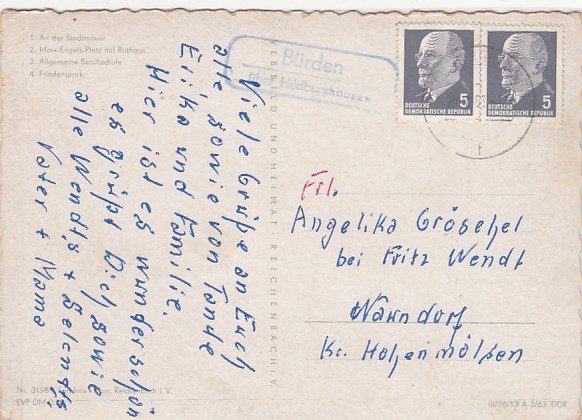 1. An der Stadtmauer
2. Marx-Engels-Platz mit Rathaus
3. Allgemeine Berufsschule
4. Friedenspark
Bürden
über Hildburghausen
DEUTSCHE
DEMOKRATISCHE REPUBLIK
5
DEUTSCHE
DEMOKRATISCHE REPUBLIK
5
Viele Grüße an Euch
alle, sowie von Tante
Erika und Familie.
Hier ist es wunderschön
es grüßt Dich, sowie
alle Wendts +
Vater + Mama
BILD UND HEIMAT REICHENBACH i. V.
Frl.
Angelika Gröschel
bei Fritz Wendt
Kr. Hohenmölsen
Reichenbach i. V.
EVP DM
A 3/63 DDR